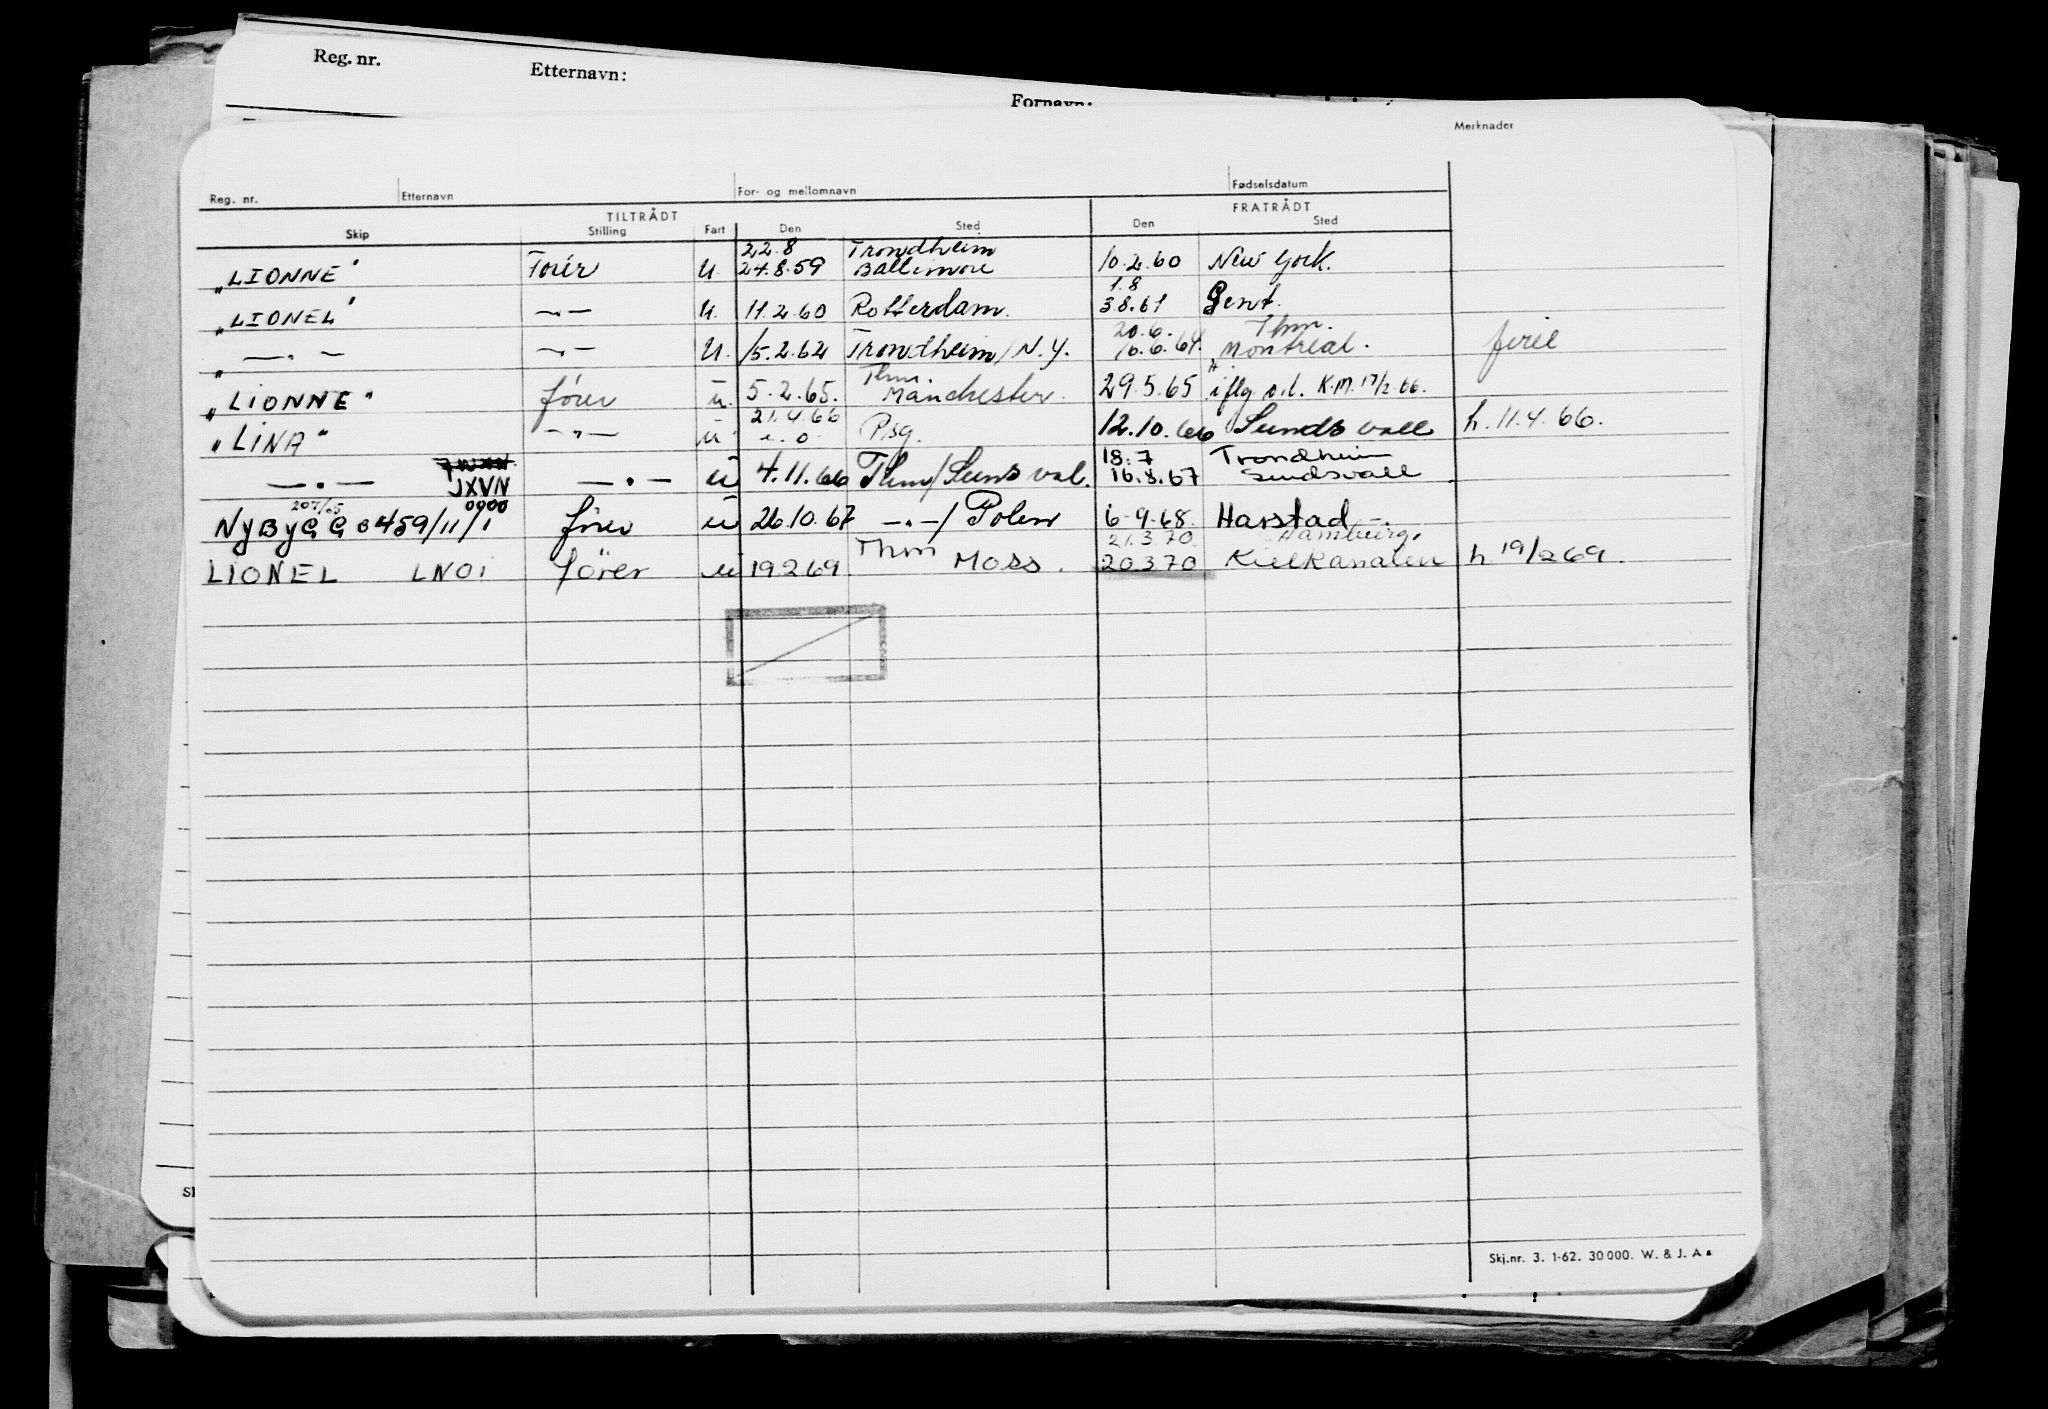 Reg. nr. Etternavn:
Fornavn:
Merknader
Reg. nr. Etternavn For- og mellomnavn Fødselsdatum
TILTRÅDT FRATRÅDT
Skip Stilling Fart Den Sted Den Sted
22.8 Trondheim
"LIONNE" Fører U. 24.8.59 Baltimore 10.2.60 New York.
1.8
"LIONEL" —〃— U. 11.2.60 Rotterdam. 3.8.61 Gent.
20.6. Thm.
—〃— —〃— U. 15.2.62 Trondheim/N.Y. 16.6.64. Montreal. ferie
Thm.
"LIONNE" fører u. 5.2.65. Manchester. 29.5.65 iflg s.l. K.M. 17/2.66.
21.4.66
"LINA" —〃— u u.o. Psg. 12.10.66 Sundsvall h. 11.4.66.
18.7 Trondheim
—.— JXVN —.— u 4.11.66 Thm/Sundsval. 16.8.67 Sundsvall
207/65 0900
NYBYGG 0459/11/1 fører u 26.10.67 —.—/Polen 6-9.68. Harstad —.
Thm 21.3.70 Hamburg.
LIONEL LNOI fører u 19.2.69. Moss. 20.3.70 Kielkanalen h 19/2 69.
Skj.nr. 3. 1-62. 30 000. W. & J. A s